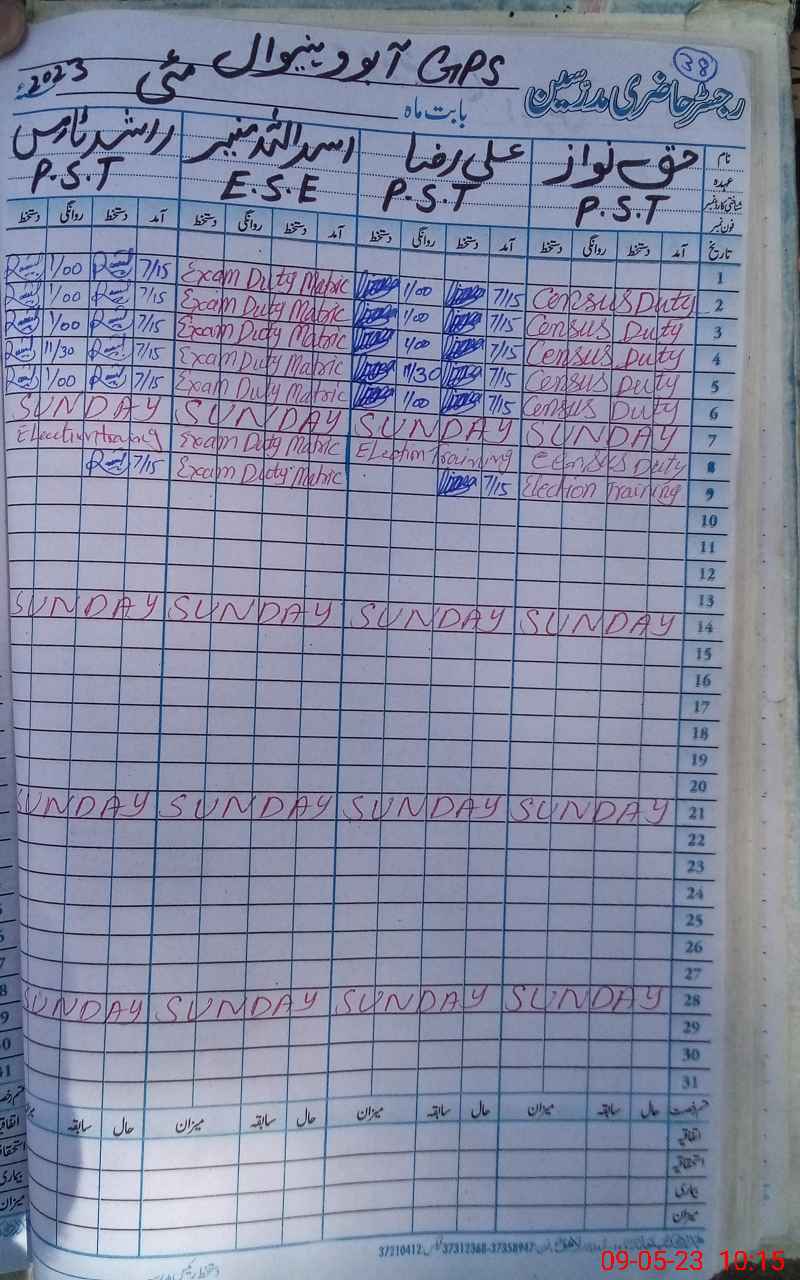 38
رجسٹر حاضری مدرسین
GPS آبو دینیوال
بابت ماہ مئی 2023ء
نام حق نواز علی رضا اسد اللہ منیر راشد
عہدہ P.S.T P.S.T E.S.E P.S.T
شناختی کارڈ نمبر
فون نمبر
تاریخ آمد دستخط روانگی دستخط آمد دستخط روانگی دستخط آمد دستخط روانگی دستخط آمد دستخط روانگی دستخط
1 7/15 1/00 Exam Duty Matric 7/15 1/00
2 Census Duty 7/15 1/00 Exam Duty Matric 7/15 1/00
3 Census Duty 7/15 1/00 Exam Duty Matric 7/15 1/00
4 Census Duty 7/15 11/30 Exam Duty Matric 7/15 11/30
5 Census Duty 7/15 1/00 Exam Duty Matric 7/15 1/00
6 Census Duty
7 SUNDAY SUNDAY SUNDAY SUNDAY
8 Census Duty Election Training Exam Duty Matric Election Training
9 Election Training 7/15 Exam Duty Matric 7/15
10
11
12
13
14 SUNDAY SUNDAY SUNDAY SUNDAY
15
16
17
18
19
20
21 SUNDAY SUNDAY SUNDAY SUNDAY
22
23
24
25
26
27
28 SUNDAY SUNDAY SUNDAY SUNDAY
29
30
31
قسم رخصت حال سابقہ میزان حال سابقہ میزان حال سابقہ میزان حال سابقہ
اتفاقیہ
استحقاقیہ
بیماری
میزان
37210412 37312368-37358947
09-05-23 10:15